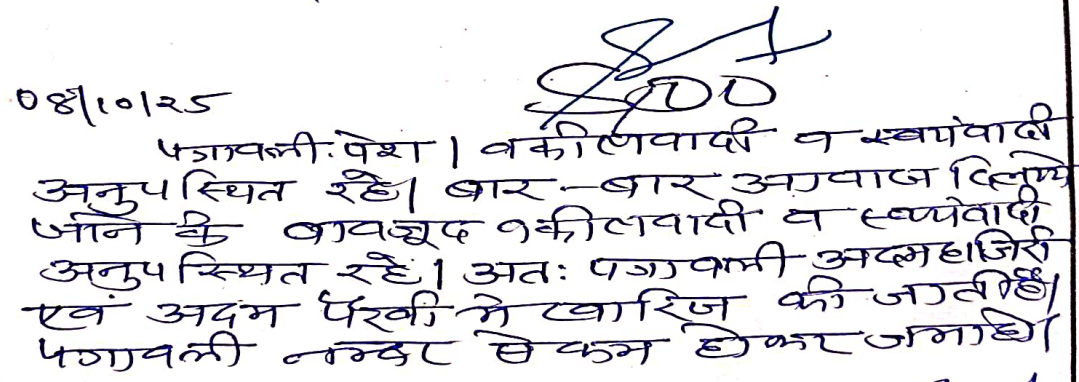 SDO
08/10/25
पत्रावली पेश। वकीलवादी व स्वयंवादी
अनुपस्थित रहे। बार-बार आवाज दिलाये
जाने के बावजूद वकीलवादी व स्वयंवादी
अनुपस्थित रहे। अतः पत्रावली अदमहाजिरी
एवं अदम पैरवी मे खारिज की जाती है।
पत्रावली नम्बर से कम होकर जमा हो।